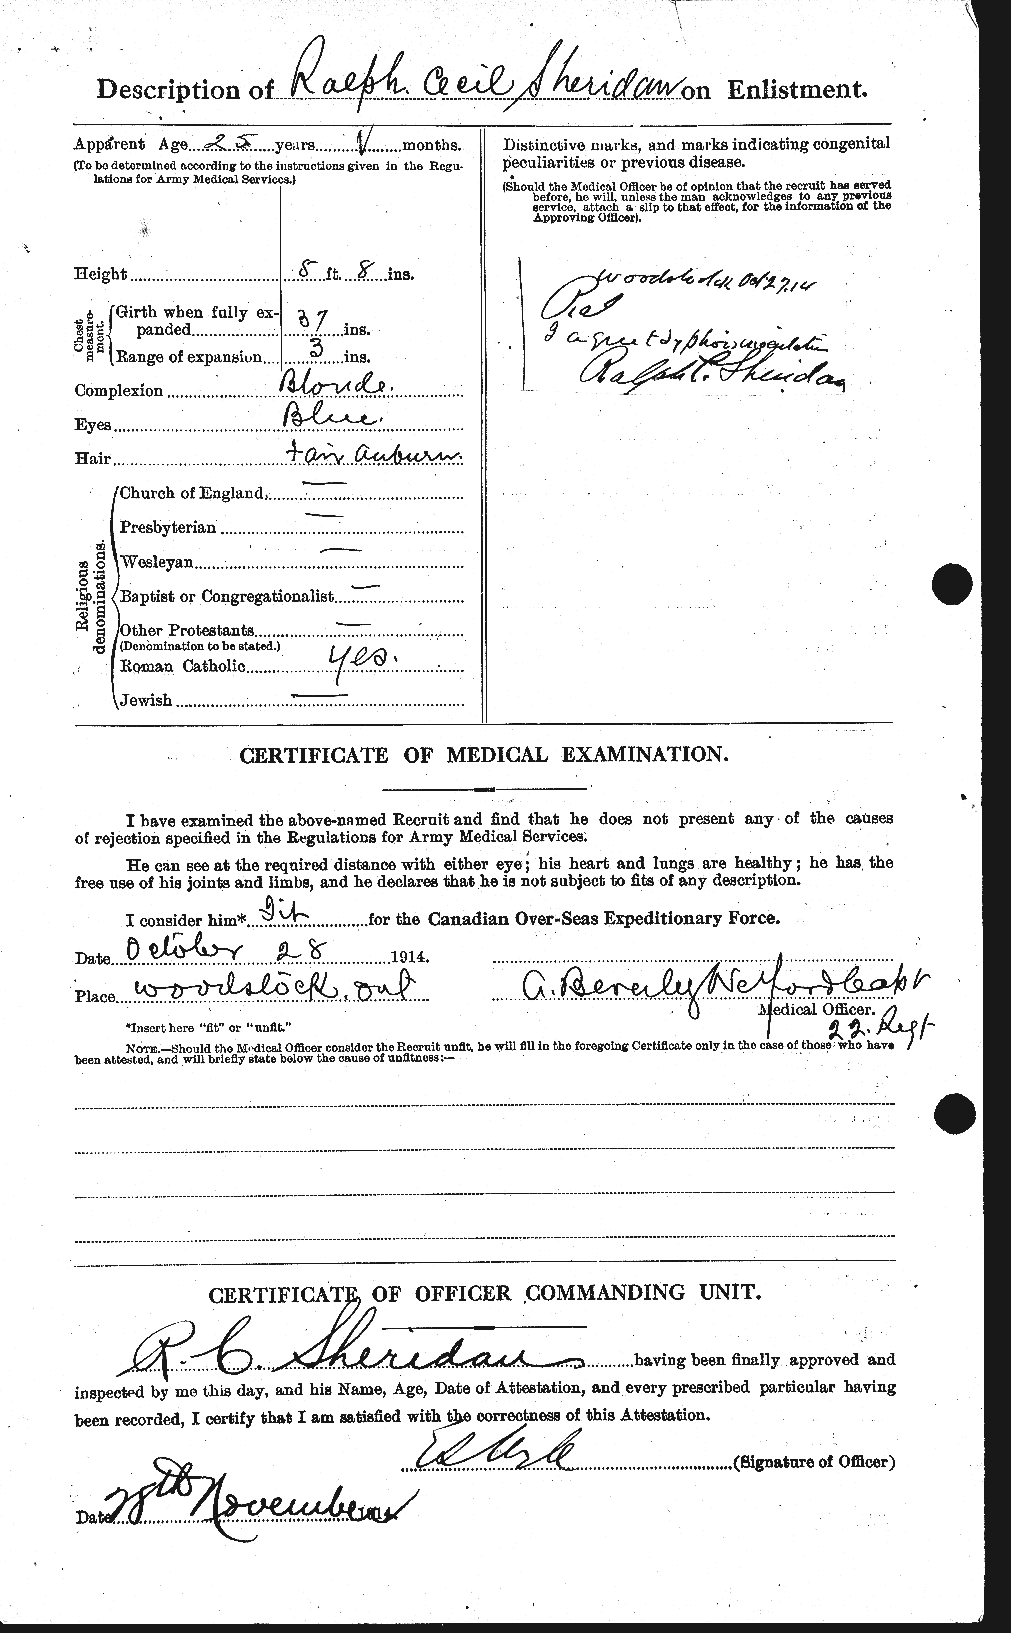 Description of Ralph Cecil Sheridan on Enlistment.
Apparent Age 25 years months.
(To be determined according to the instructions given in the Regu-
lations for Army Medical Services.)
Height 5 ft. 8 ins.
Chest measure-ment.
Girth when fully ex-
panded 37 ins.
Range of expansion 3 ins.
Complexion Blonde.
Eyes Blue.
Hair fair auburn.
Religious denominations.
Church of England —
Presbyterian —
Wesleyan —
Baptist or Congregationalist —
Other Protestants —
(Denomination to be stated.)
Roman Catholic Yes.
Jewish —
Distinctive marks, and marks indicating congenital
peculiarities or previous disease.
(Should the Medical Officer be of opinion that the recruit has served
before, he will, unless the man acknowledges to any previous
service, attach a slip to that effect, for the information of the
Approving Officer).
Woodstock Oct 27.14
I agree to typhoid inoculation
Ralph C. Sheridan
CERTIFICATE OF MEDICAL EXAMINATION.
I have examined the above-named Recruit and find that he does not present any of the causes
of rejection specified in the Regulations for Army Medical Services.
He can see at the required distance with either eye; his heart and lungs are healthy; he has the
free use of his joints and limbs, and he declares that he is not subject to fits of any description.
I consider him* Fit for the Canadian Over-Seas Expeditionary Force.
Date October 28 1914.
Place Woodstock, Ont
A. Beverly Welford Capt
Medical Officer.
22. Regt
*Insert here "fit" or "unfit."
NOTE.—Should the Medical Officer consider the Recruit unfit, he will fill in the foregoing Certificate only in the case of those who have
been attested, and will briefly state below the cause of unfitness:—
CERTIFICATE OF OFFICER COMMANDING UNIT.
R. C. Sheridan having been finally approved and
inspected by me this day, and his Name, Age, Date of Attestation, and every prescribed particular having
been recorded, I certify that I am satisfied with the correctness of this Attestation.
(Signature of Officer)
Date 28th November 1914